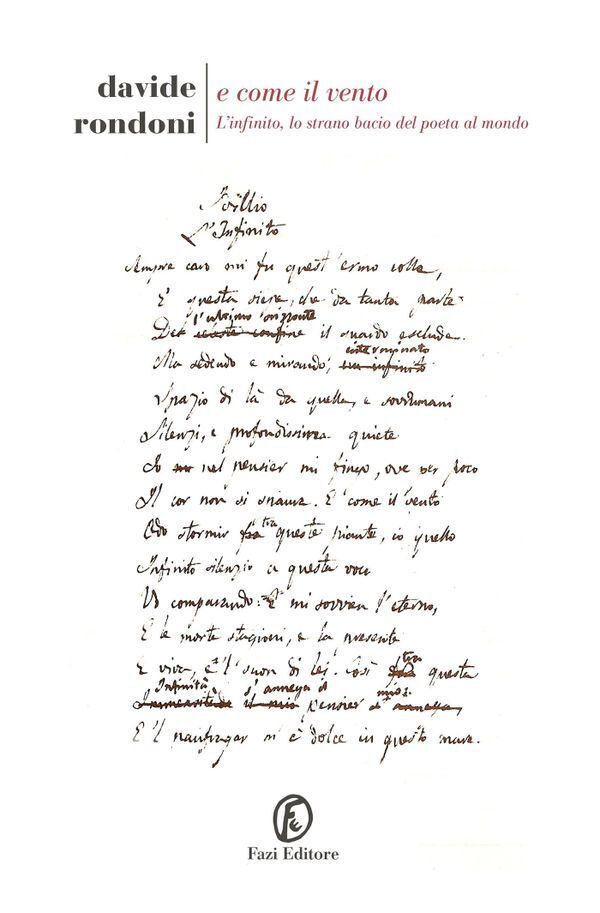 davide
rondoni
e come il vento
L'infinito, lo strano bacio del poeta al mondo
Idillio
L'Infinito
Sempre caro mi fu quest'ermo colle,
E questa siepe, che da tanta parte
l'ultimo orizzonte
Del celeste confine il guardo esclude.
interminato
Ma sedendo e mirando, un infinito
Spazio di là da quella, e sovrumani
Silenzi, e profondissima quiete
Io nel pensier mi fingo, ove per poco
Il cor non si spaura. E come il vento
tra
Odo stormir fra queste piante, io quello
Infinito silenzio a questa voce
Vo comparando: E mi sovvien l'eterno,
E le morte stagioni, e la presente
tra
E viva, e 'l suon di lei. Così fra questa
Infinità s'annega il mio:
Immensità il mio pensier s'annega,
E 'l naufragar m'è dolce in questo mare.
Fe
Fazi Editore